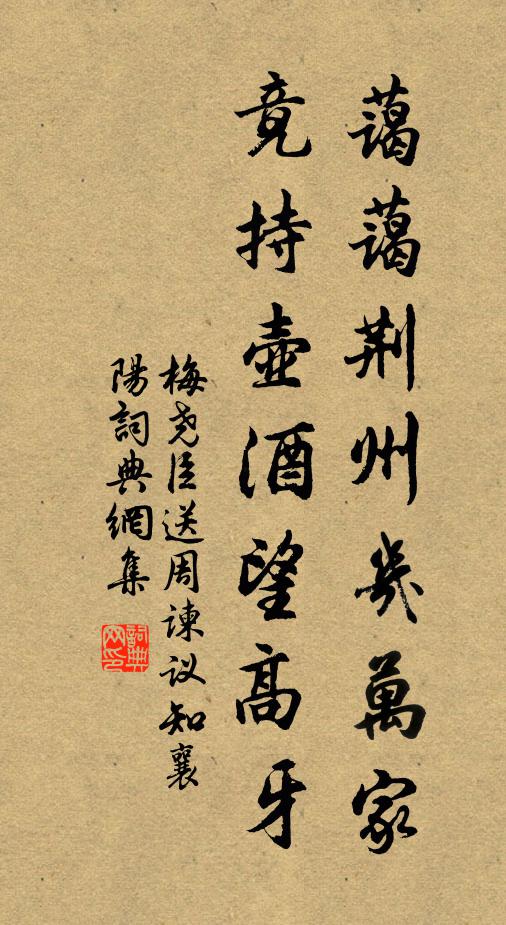 藹藹荆州幾萬家
竟持壺酒望高牙
梅尧臣送周諫议知襄
陽詞典網集
詞典
网印